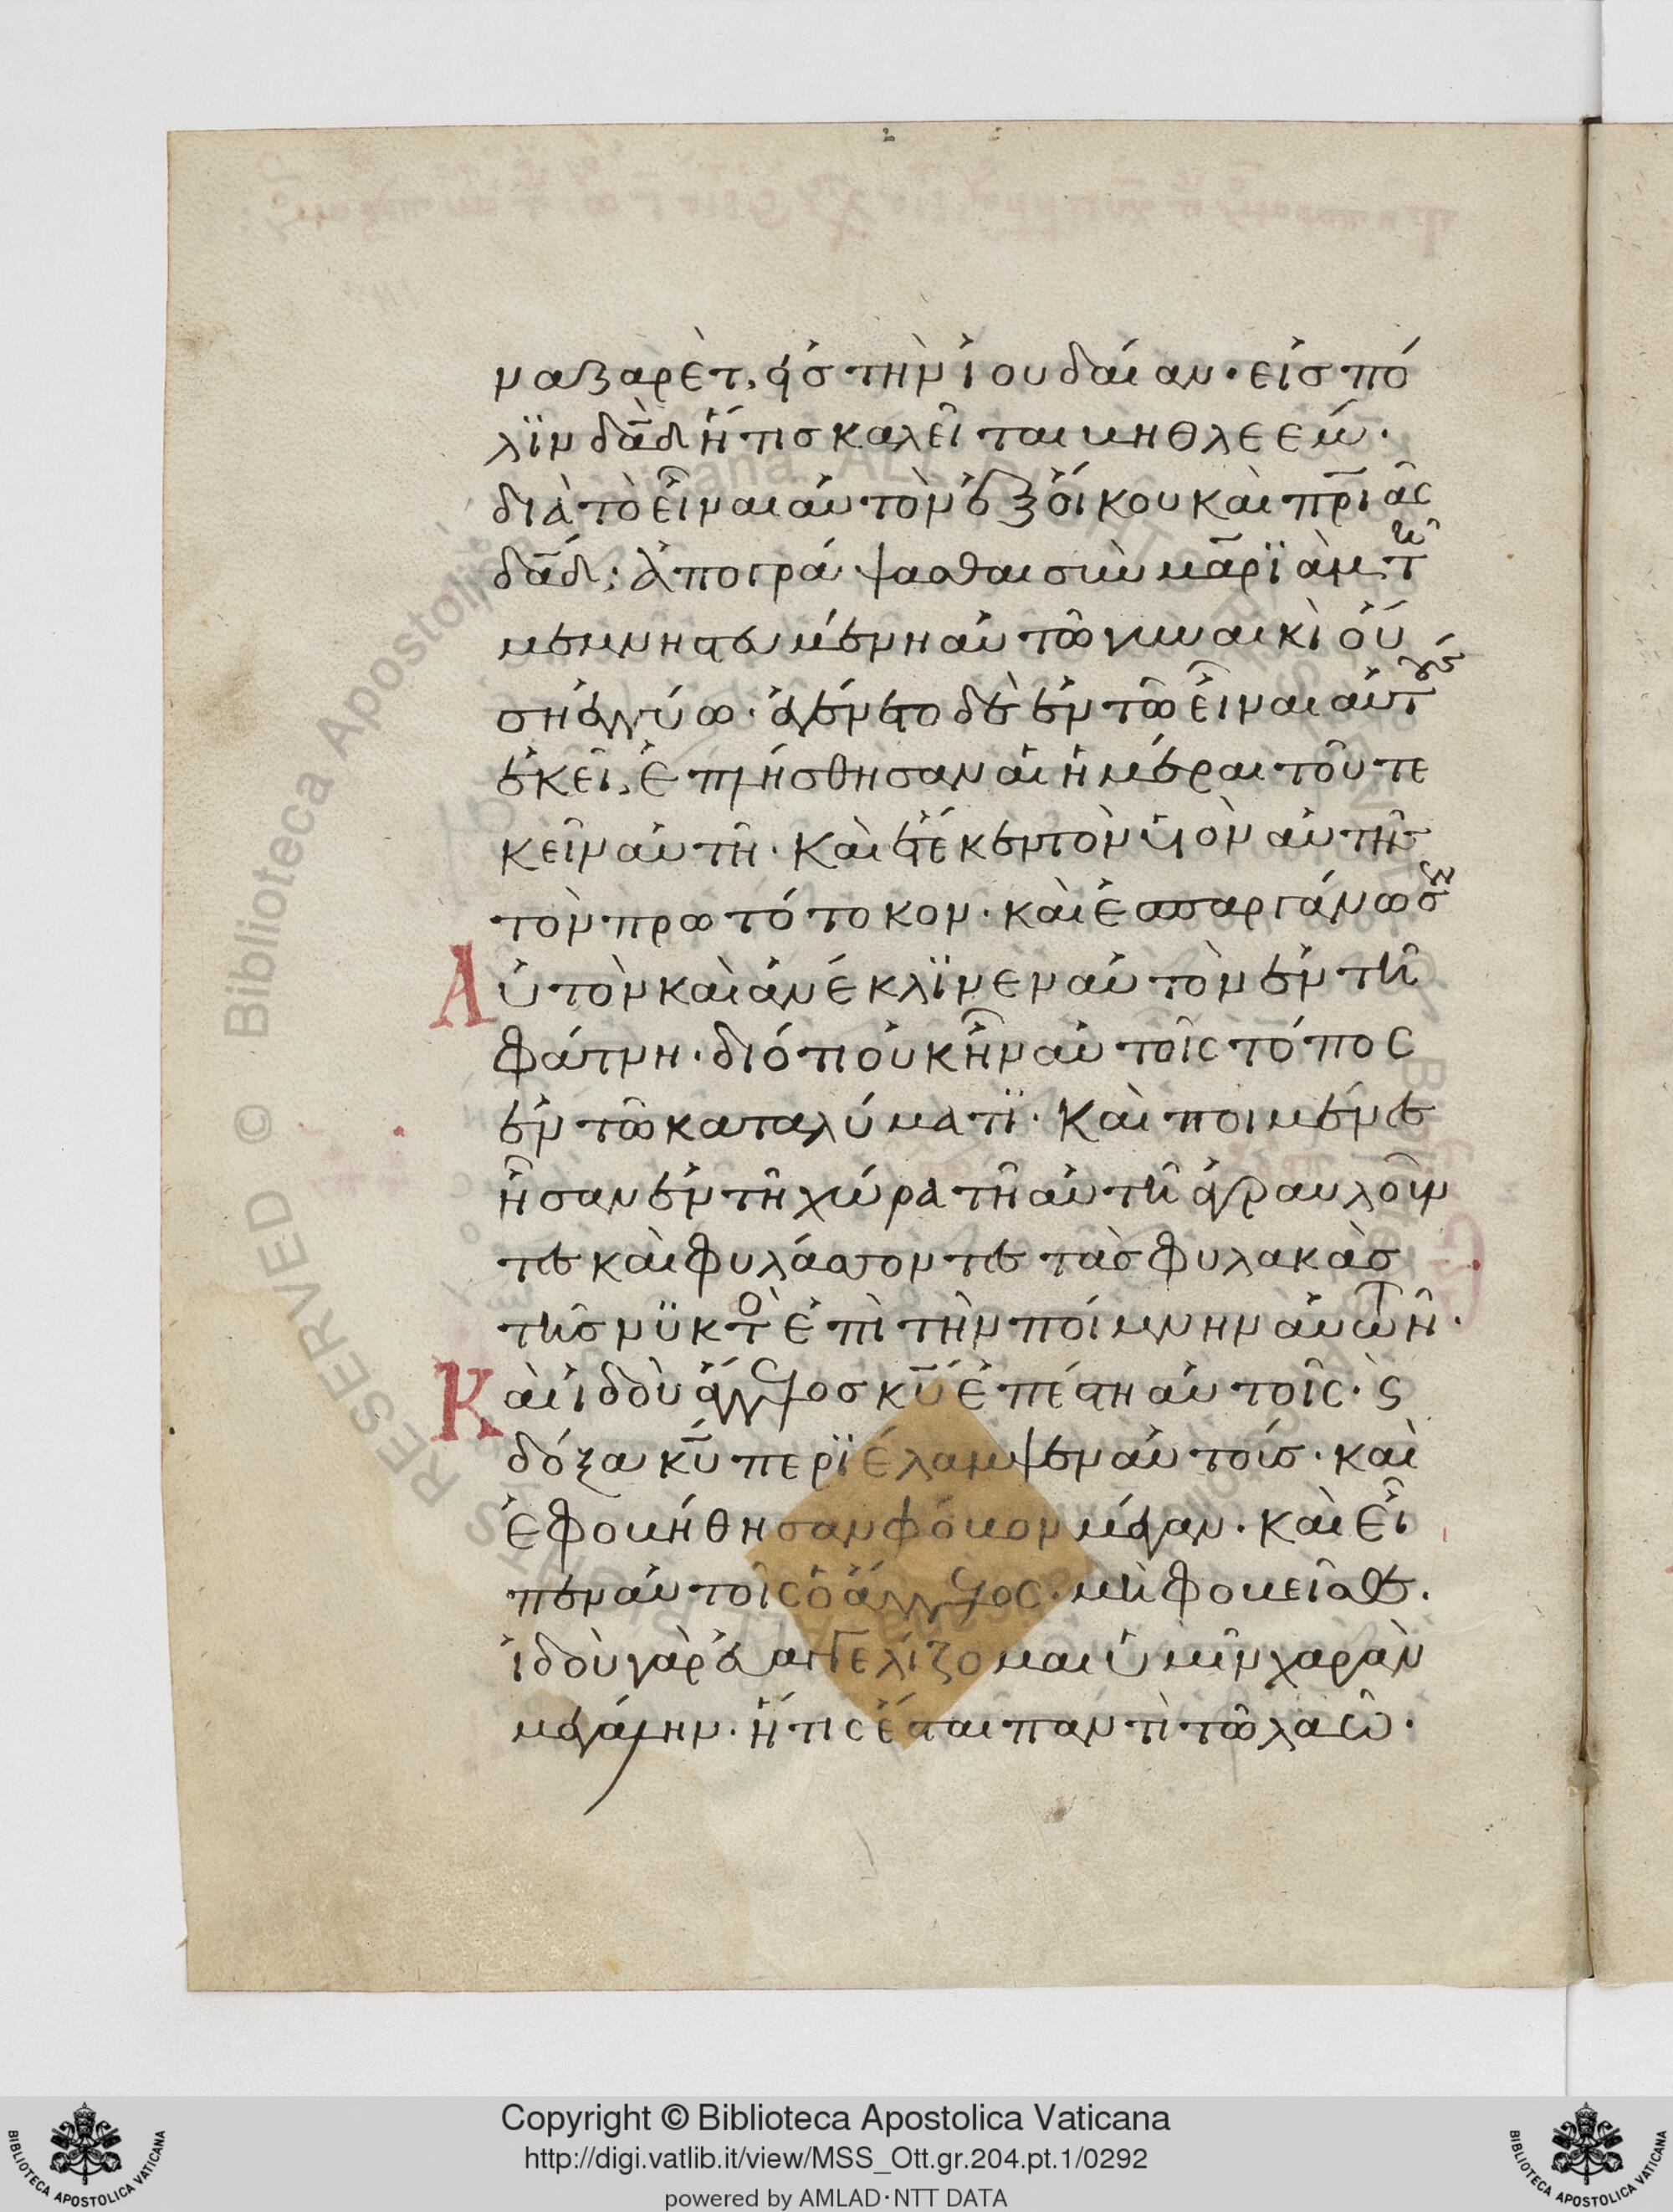 ναζαρὲτ, εἰς τὴν ἰουδαίαν· εἰς πό
λϊν δᾱδ ἥτις καλεῖται βηθλεέμ·
διὰ τὸ εἶναι αὐτὸν ἐξ οἴκου καὶ πρ̄ιᾶς
δᾱδ· ἀπογράψασθαι σὺν μαρϊὰμ τῆ
μεμνηστευμένη αὐτῶ γυναικὶ οὔ
ση ἐγγύω· ἐγένετο δὲ ἐν τῶ εἶναι αὐτοὺς
ἐκεῖ, ἐπλήσθησαν αἱ ἡμέραι τοῦ τε
κεῖν αὐτή· Καὶ ἔτεκεν τὸν υἱὸν αὐτῆς
τὸν πρωτότοκον· καὶ ἐσπαργάνωσεν
Αὐτὸν καὶ ἀνέκλϊνεν αὐτὸν ἐν τῆ
φάτνη· διότι οὐκ ἦν αὐτοῖς τόπος
ἐν τῶ καταλύματϊ· Καὶ ποιμένες
ἦσαν ἐν τῆ χώρα τῆ αὐτῆ ἀγραυλοῦν
τες καὶ φυλάσσοντες τὰς φυλακὰς
τῆς νϋκτὸς ἐπὶ τὴν ποίμνην αὐτῶν·
Καὶ ἰδοὺ ἄγγελος κῡ ἐπέστη αὐτοῖς· ϛ
δόξα κῡ περϊέλαμψεν αὐτοίς· καὶ
ἐφοβήθησαν φόβον μέγαν· καὶ εἶ
πεν αὐτοῖς ὁ ἄγγελος· μὴ φοβεῖσθε·
ἰδοὺ γὰρ εὐαγγελίζομαι ὑμῖν χαρὰν
μεγάλην· ἥτις ἔσται παντὶ τῶ λαῶ·
Copyright © Biblioteca Apostolica Vaticana
http://digi.vatlib.it/view/MSS_Ott.gr.204.pt.1/0292
powered by AMLAD·NTT DATA
BIBLIOTECA APOSTOLICA VATICANA
BIBLIOTECA APOSTOLICA VATICANA